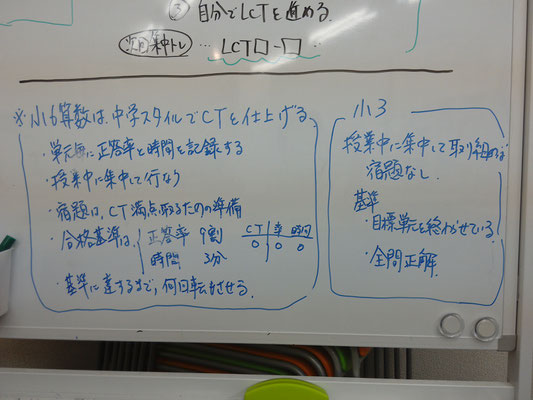 ③ 自分でLCTを進める.
次回集中トレ … LCT□-□
※小6算数は、中学スタイルでCTを仕上げる
・単元毎に正答率と時間を記録する
・授業中に集中して行なう
・宿題は、CT満点取るための準備
・合格基準は、 正答率 9割
時間 3分
CT 率 時間
○ ○ ○
・基準に達するまで、何回転もさせる.
小3
授業中に集中して取り組めば
宿題なし.
基準
・目標単元を終わらせている.
・全問正解.